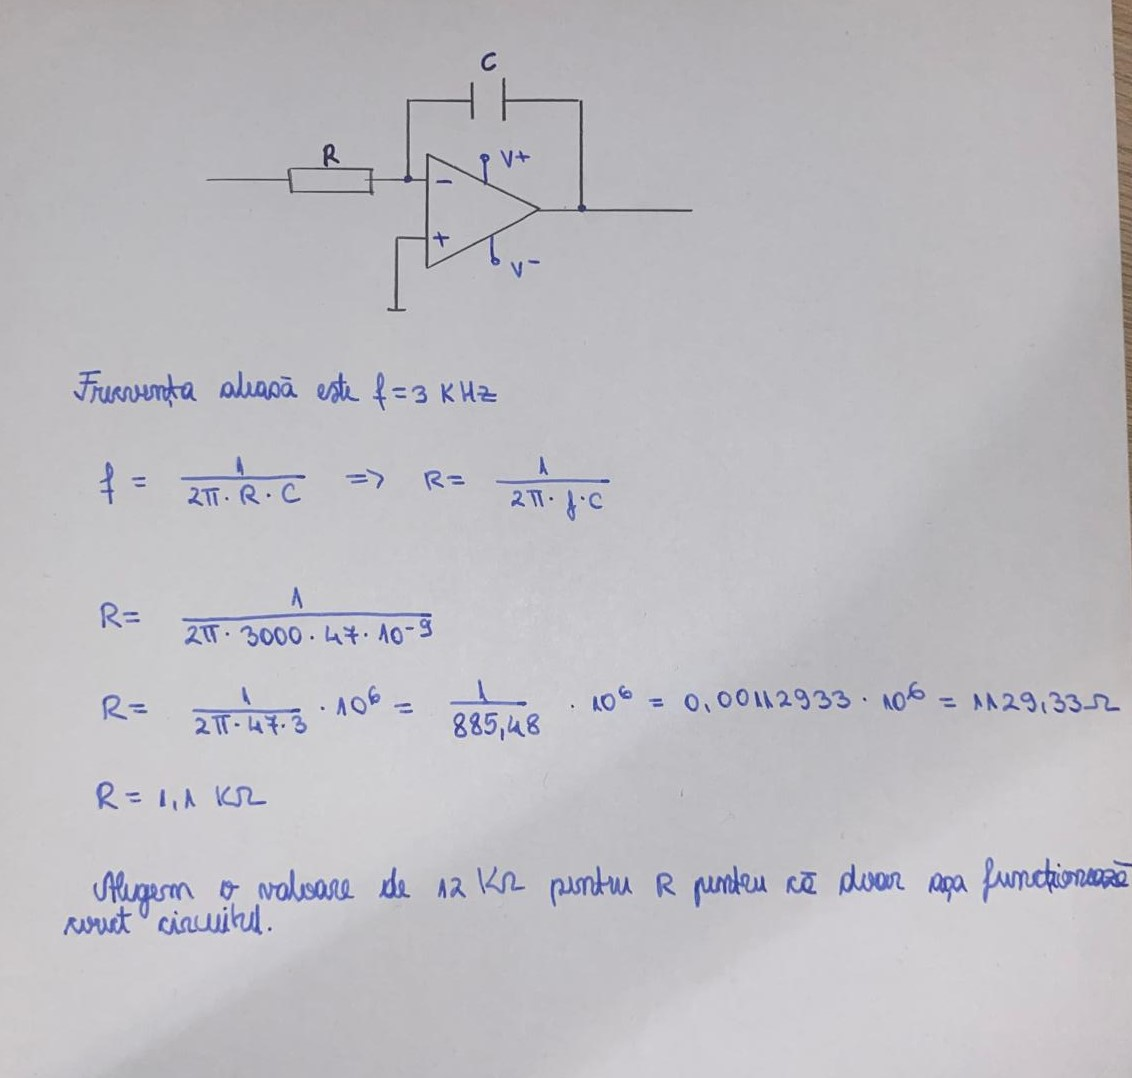 C
R
V+
-
+
V-
Frecvența aleasă este f = 3 KHz
f = 1 / 2π · R · C => R = 1 / 2π · f · C
R = 1 / 2π · 3000 · 47 · 10⁻⁹
R = 1 / 2π · 47 · 3 · 10⁶ = 1 / 885,48 · 10⁶ = 0,00112933 · 10⁶ = 1129,33 Ω
R = 1,1 KΩ
Alegem o valoare de 12 KΩ pentru R pentru că doar așa funcționează
corect circuitul.